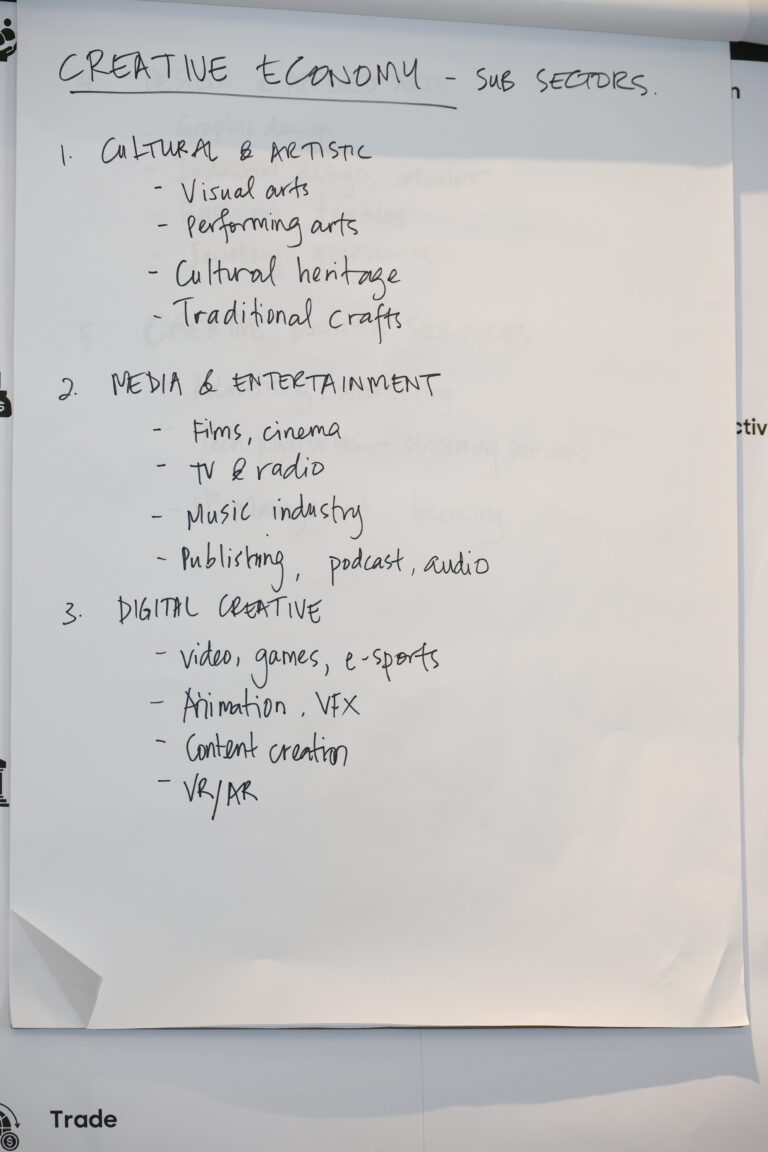 CREATIVE ECONOMY - SUB SECTORS.
1. CULTURAL & ARTISTIC
- Visual arts
- Performing arts
- Cultural heritage
- Traditional crafts
2. MEDIA & ENTERTAINMENT
- Films, cinema
- TV & radio
- Music industry
- Publishing, podcast, audio
3. DIGITAL CREATIVE
- Video, games, e-sports
- Animation, VFX
- Content creation
- VR/AR
Graphic design
design, interior
5. SERVICES
streaming services
licensing
n
ctiv
Trade